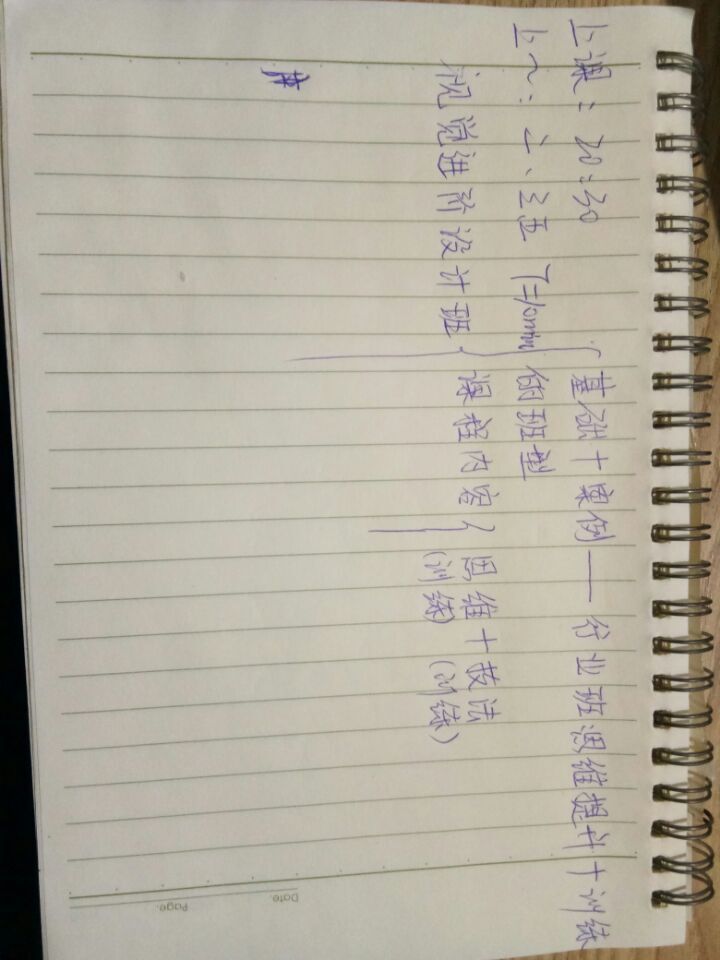 上课：20:30
上~：二、三五 T=10min
视觉进阶设计班
基础+案例——行业班思维提升+训练
班型
课程内容
思维+技法
(训练) (训练)
Date.
Page.